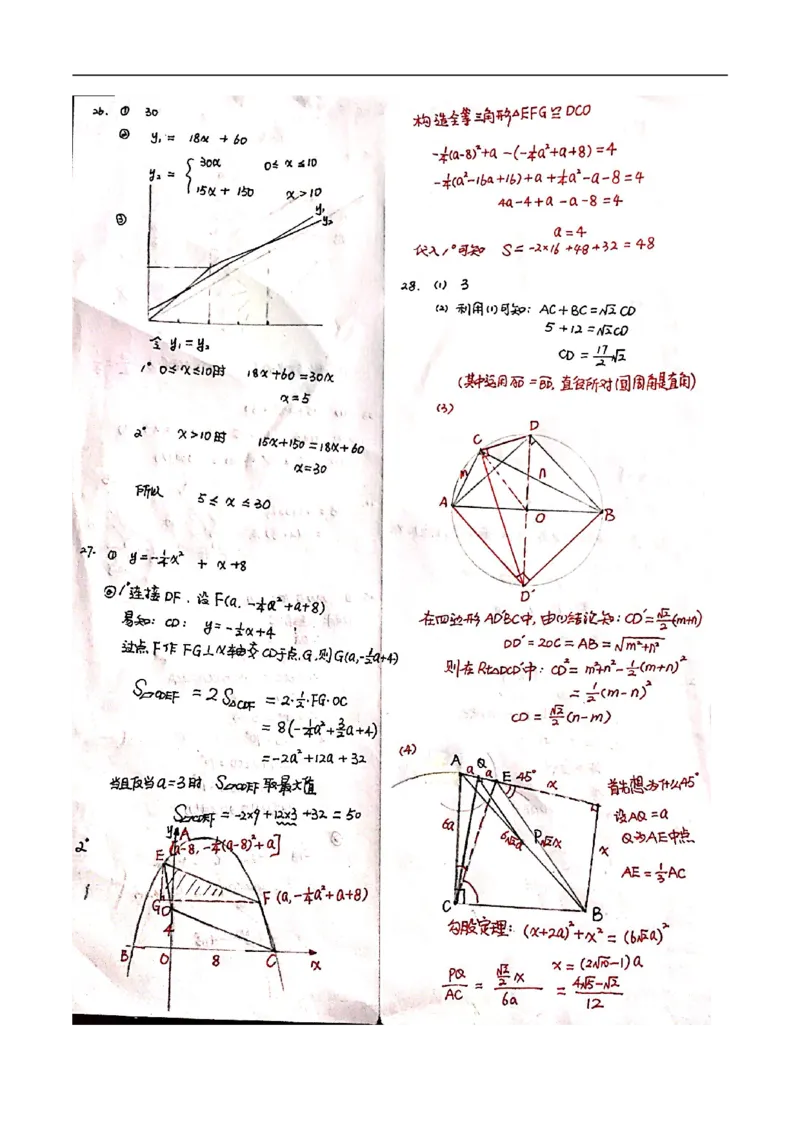 26. ① 30
② y₁ = 18x + 60
y₂ = { 30x 0≤x≤10
15x + 150 x>10
③
y₁
y₂
令 y₁ = y₂
1° 0≤x≤10时 18x+60=30x
x=5
2° x>10时 15x+150=18x+60
x=30
所以 5≤x≤30
27. ① y=-¼x² + x+8
② 1°连接DF. 设F(a, -¼a²+a+8)
易知: CD: y=-½x+4
过点F作FG⊥x轴交CD于点G, 则G(a,-½a+4)
S▱CDEF = 2S△CDF = 2·½·FG·OC
= 8(-¼a²+3/2a+4)
= -2a²+12a+32
当且仅当a=3时, S▱CDEF取最大值
S▱CDEF = -2×9+12×3+32=50
2°
y
A
E
(a-8, -¼(a-8)²+a]
F (a, -¼a²+a+8)
G
D
4
B
O
8
C
x
构造全等三角形△EFG≌DCO
-¼(a-8)²+a-(-¼a²+a+8)=4
-¼(a²-16a+16)+a+¼a²-a-8=4
4a-4+a-a-8=4
a=4
代入1°可知 S=-2×16+48+32=48
28. (1) 3
(2) 利用(1)可知: AC+BC=√2CD
5+12=√2CD
CD=17/2√2
(其中运用AD=BD, 直径所对圆周角是直角)
(3)
D
C
m
n
A
O
B
D'
在四边形AD'BC中, 由(1)结论知: CD'=√2/2(m+n)
DD'=2OC=AB=√m²+n²
则在Rt△DCD'中: CD²=m²+n²-½(m+n)²
=½(m-n)²
CD=√2/2(n-m)
(4)
A
a
Q
a
E
45°
x
6a
6√2a
P
√2x
x
C
B
设AQ=a
Q为AE中点
AE=⅓AC
勾股定理: (x+2a)²+x²=(6√2a)²
x=(2√10-1)a
PQ/AC = √2/2x/6a = 4√5-√2/12